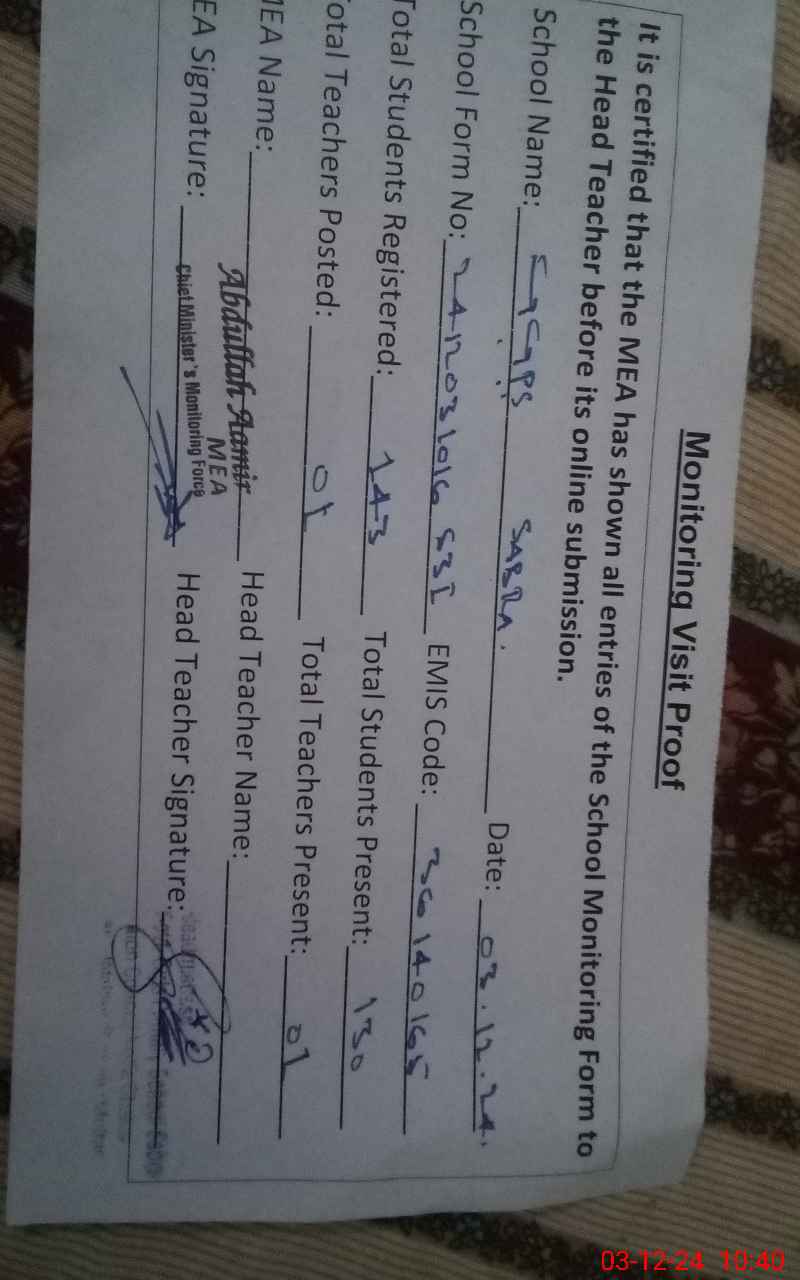 Monitoring Visit Proof
It is certified that the MEA has shown all entries of the School Monitoring Form to
the Head Teacher before its online submission.
School Name: SABRA. Date: 03.12.24.
School Form No: EMIS Code: 36140165
Total Students Registered: 143 Total Students Present: 130
Total Teachers Posted: 01 Total Teachers Present: 01
MEA Name: Abdullah Aamir Head Teacher Name:
MEA
EA Signature: Chief Minister's Monitoring Force Head Teacher Signature:
03-12-24 10:40